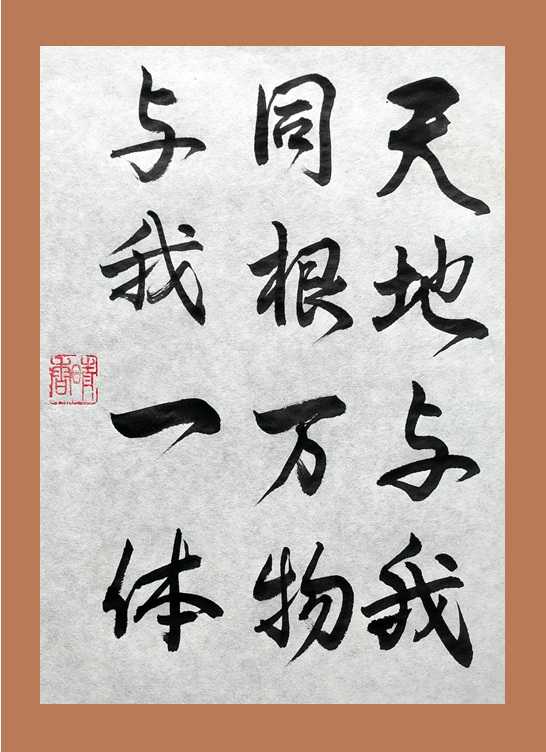 天地与我
同根万物
与我一体